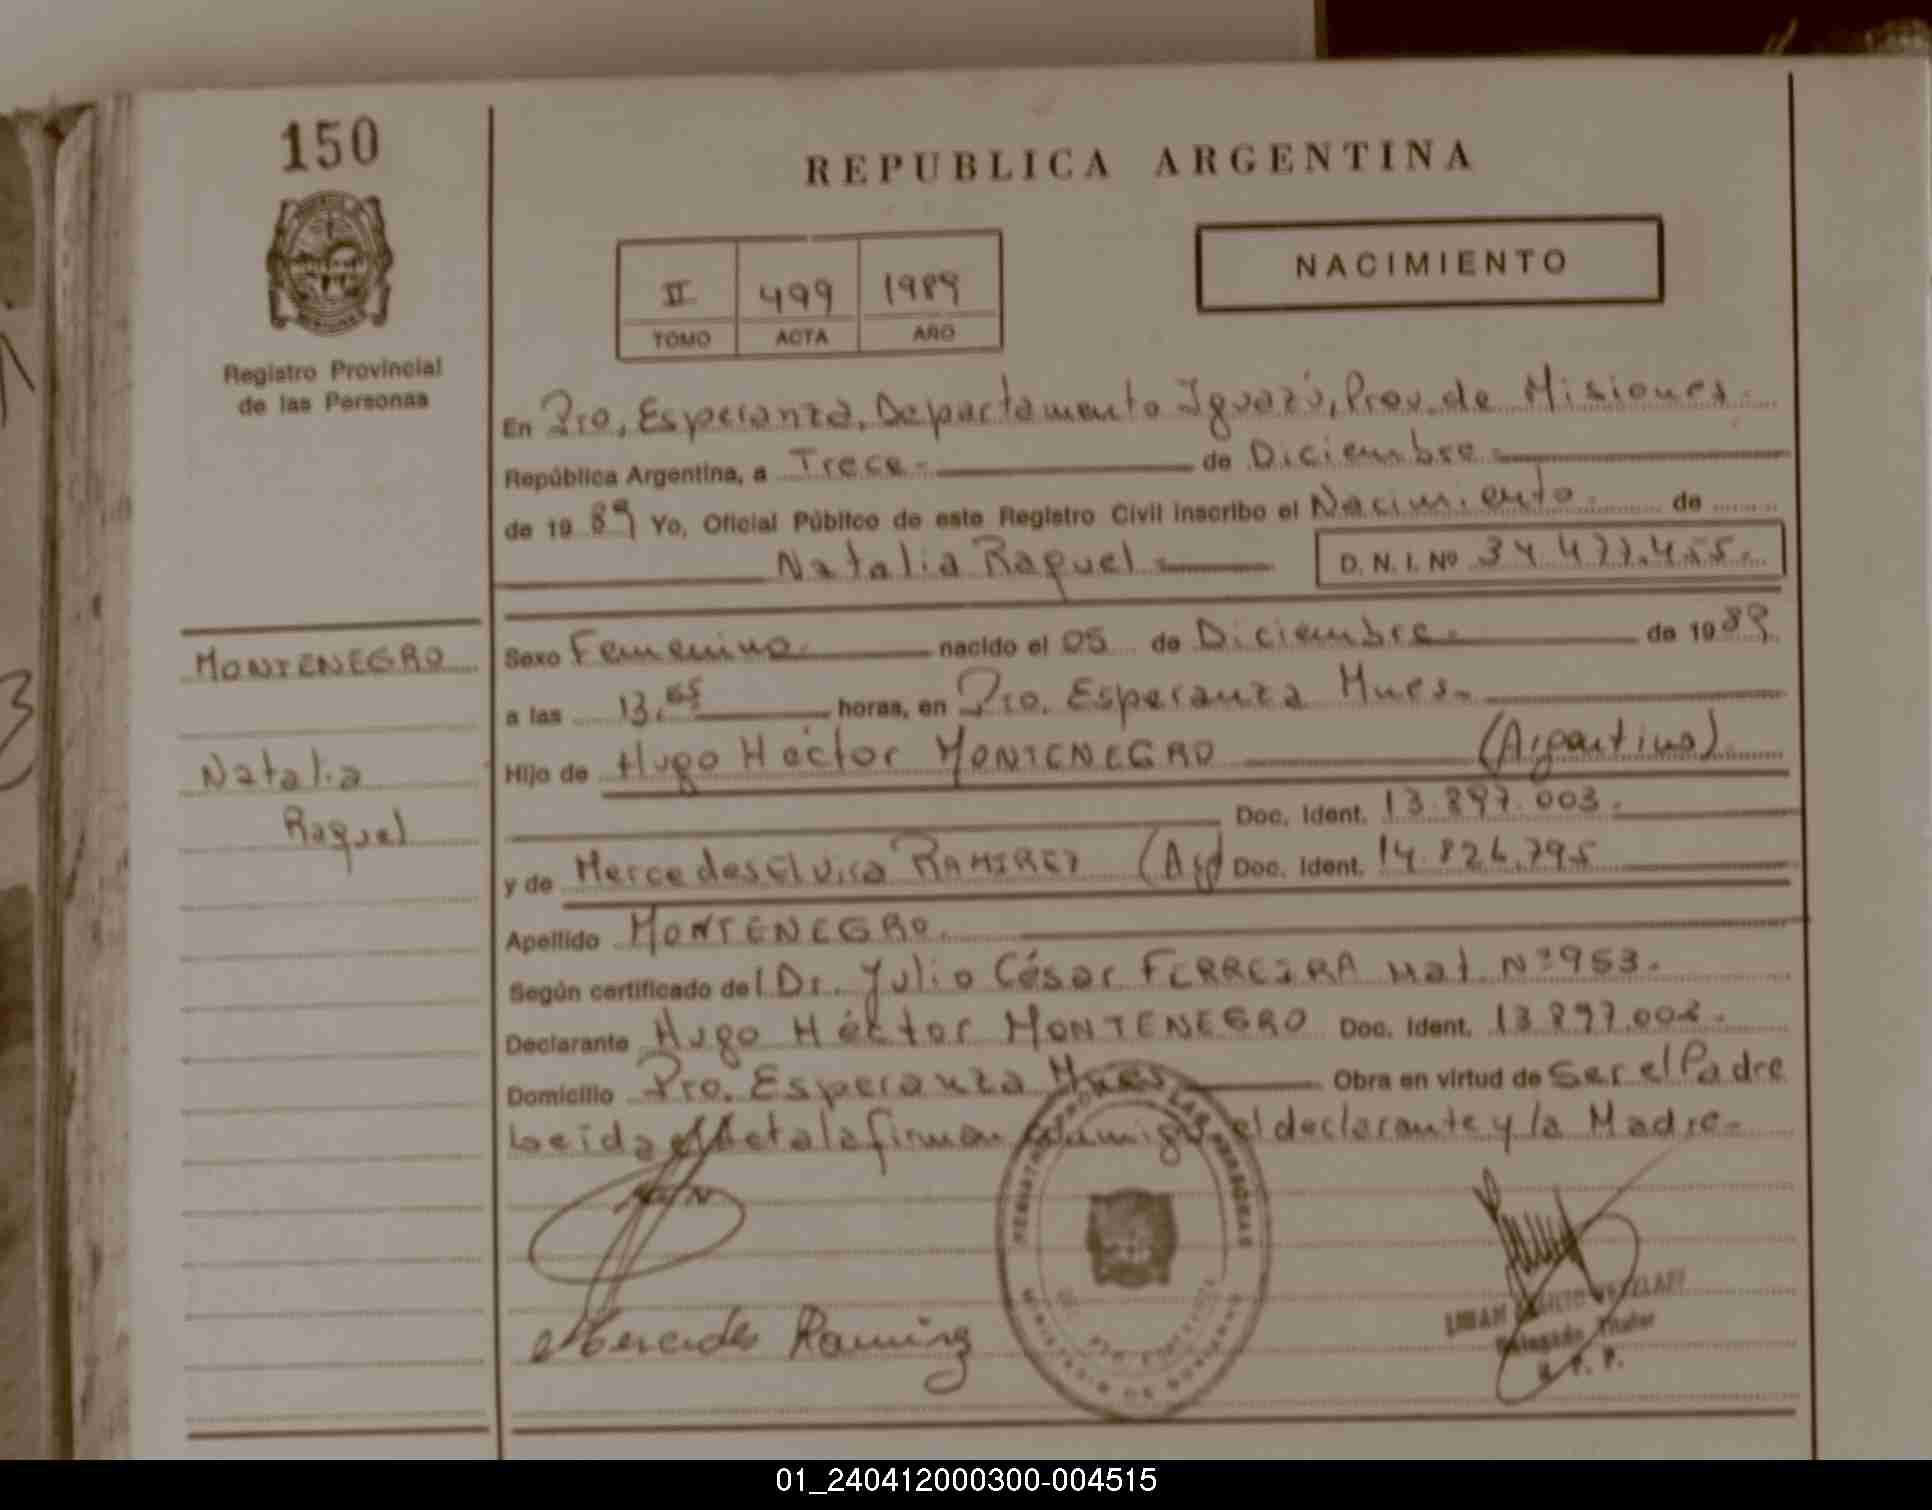 150
REPUBLICA ARGENTINA
II 499 1989
TOMO ACTA AÑO
NACIMIENTO
Registro Provincial
de las Personas
En Pto. Esperanza, Departamento Iguazú, Prov. de Misiones.
República Argentina, a Trece.- de Diciembre
de 19 89 Yo, Oficial Público de este Registro Civil inscribo el Nacimiento. de
Natalia Raquel D. N. I. Nº 34.477.455.
MONTENEGRO
Natalia
Raquel
Sexo Femenino. nacido el 05 de Diciembre. de 19 89
a las 13, horas, en Pto. Esperanza Mnes.
Hijo de Hugo Héctor MONTENEGRO (Argentino).
Doc. Ident. 13.897.003.
y de Mercedes Elvira RAMIREZ (Arg) Doc. Ident. 14.826.795
Apellido MONTENEGRO.
Según certificado del Dr. Julio César FERREIRA Mat. Nº 953.
Declarante Hugo Héctor MONTENEGRO Doc. Ident. 13.897.003.
Domicilio Pto. Esperanza Mnes Obra en virtud de Ser el Padre
Leída el Acta la firman conmigo el declarante y la Madre.
Mercedes Ramirez
Delegado Titular
R. P. P.
01_240412000300-004515